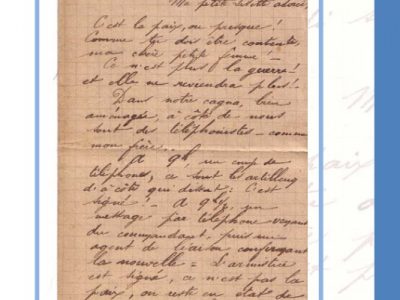 Ma petite Lisette adorée,
C'est la paix, ou presque !
Comme tu dois être contente,
ma chère petite femme !
Ce n'est plus la guerre !
et elle ne reviendra plus !
Dans notre cagna, bien
aménagée, à côté de nous
sont des téléphonistes – comme
mon frère..
A 9h, un coup de
téléphone, ce sont les artilleurs
d'à côté qui disent : C'est
signé ! – A 9h½, un
message par téléphone venant
du commandant, puis un
agent de liaison confirmant
la nouvelle = L'armistice
est signé, ce n'est pas la
paix, on reste en état de